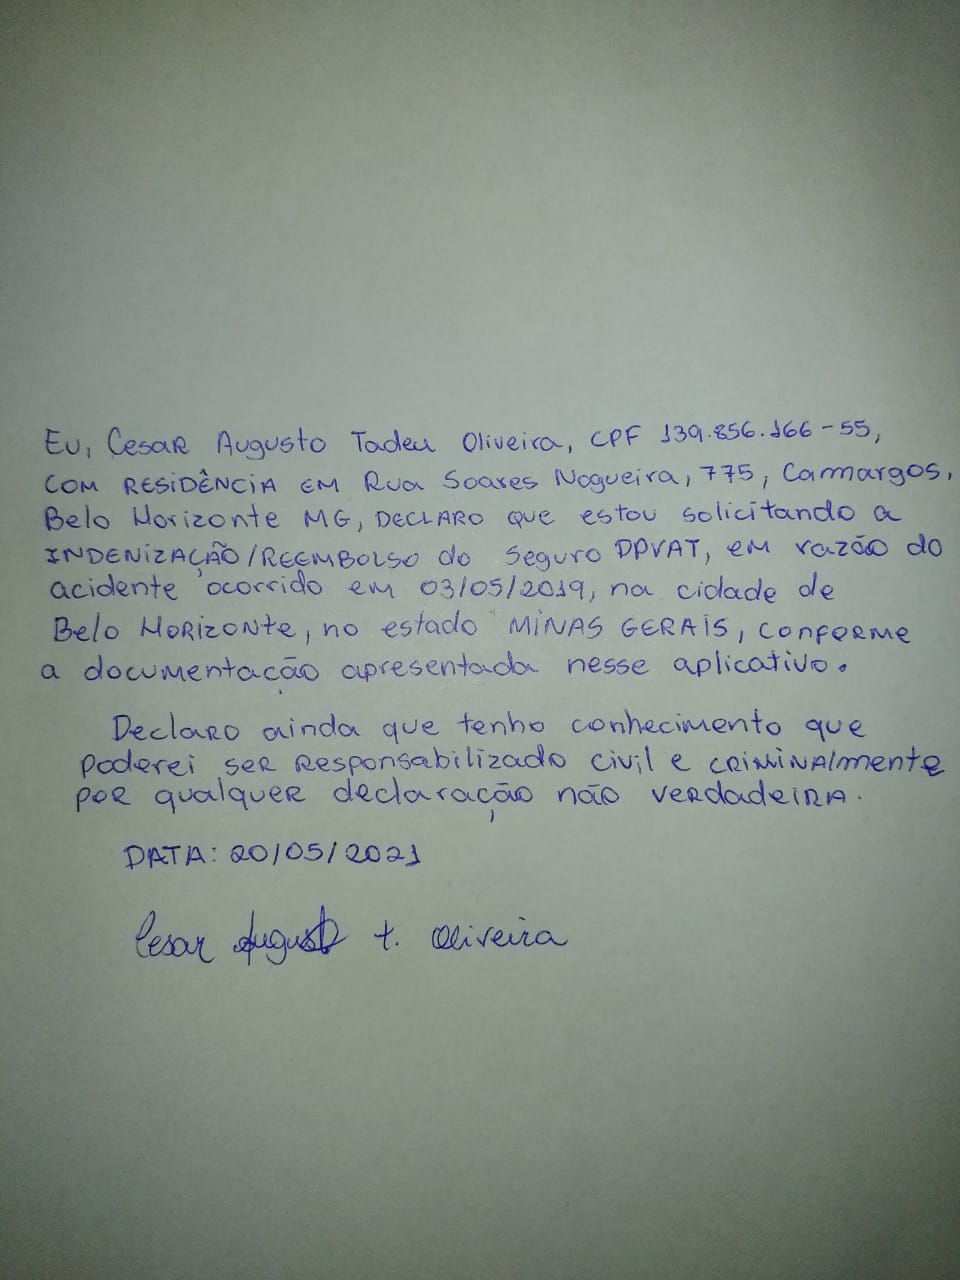 Eu, Cesar Augusto Tadeu Oliveira, CPF 139.856.166-55,
COM RESIDÊNCIA EM Rua Soares Nogueira, 775, Camargos,
Belo Horizonte MG, DECLARO que estou solicitando a
INDENIZAÇÃO/REEMBOLSO do Seguro DPVAT, em razão do
acidente ocorrido em 03/05/2019, na cidade de
Belo Horizonte, no estado MINAS GERAIS, conforme
a documentação apresentada nesse aplicativo.
Declaro ainda que tenho conhecimento que
poderei ser responsabilizado civil e criminalmente
por qualquer declaração não verdadeira.
DATA: 20/05/2021
Cesar Augusto t. Oliveira